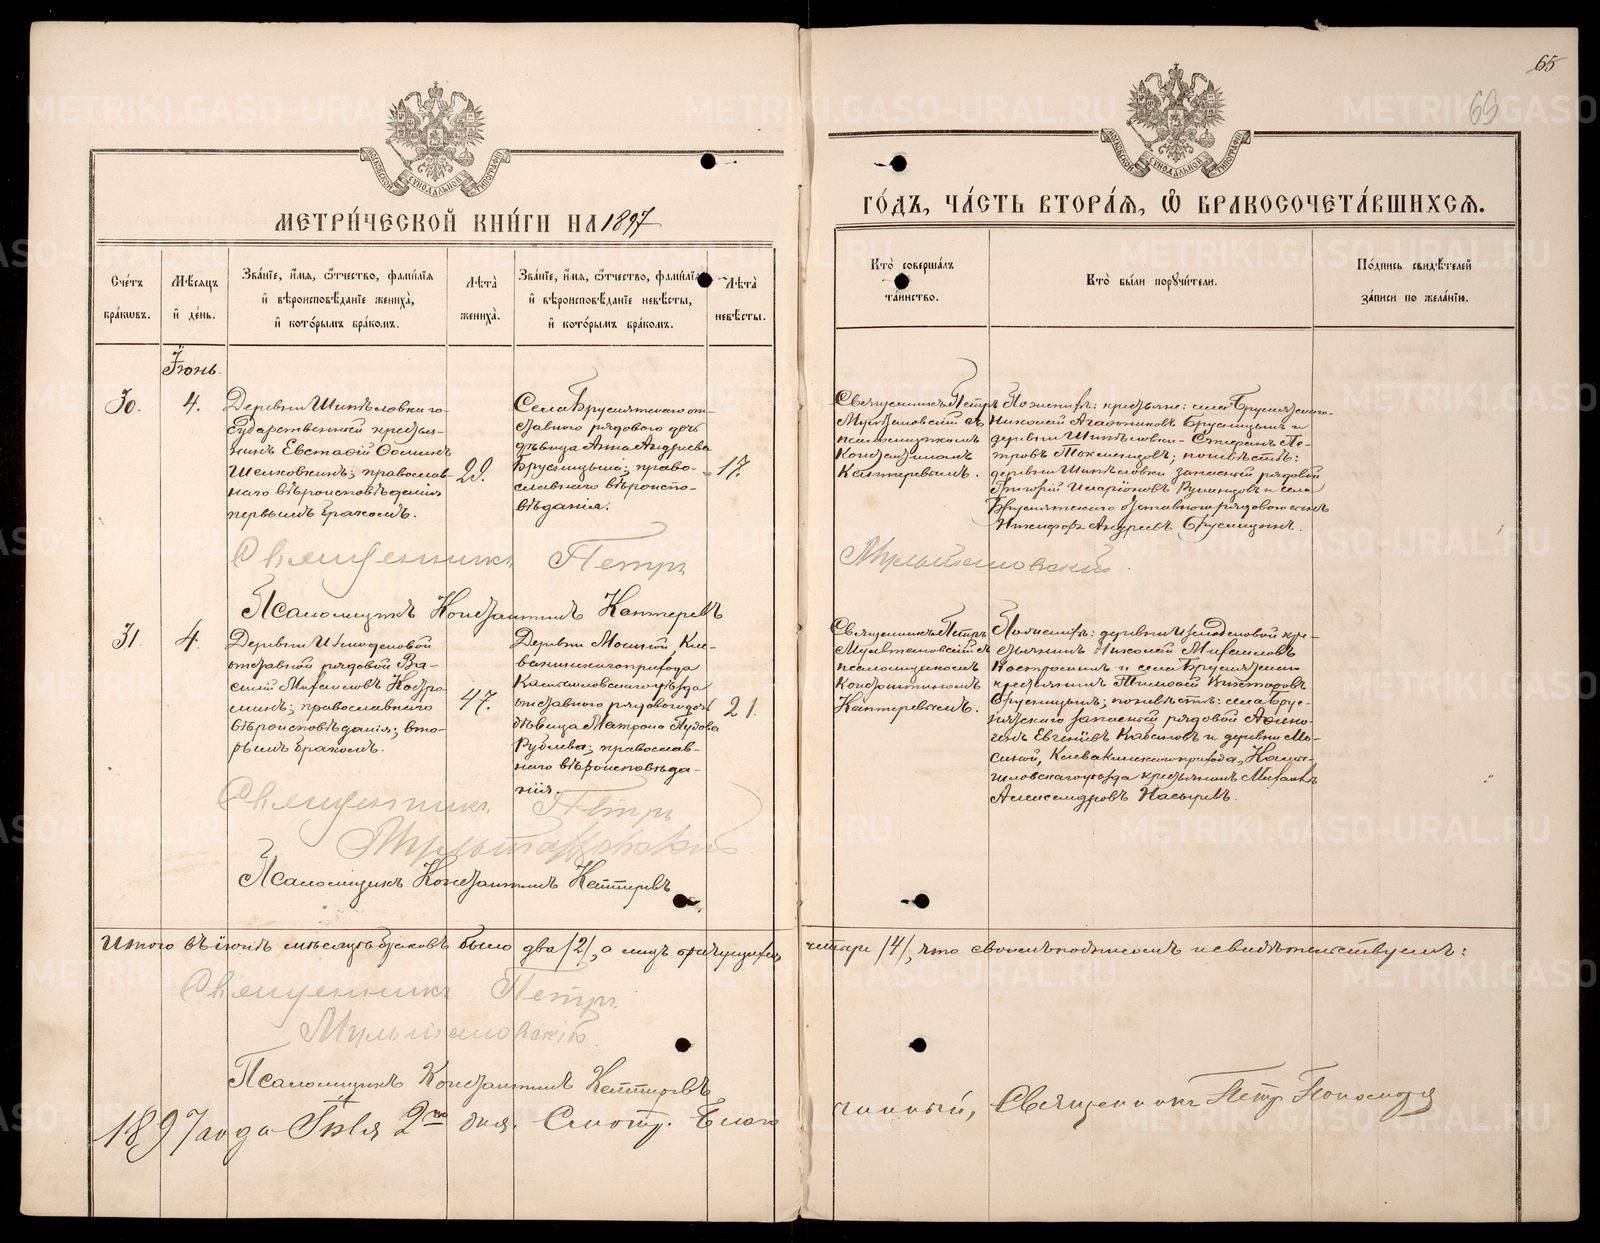 65
66
МЕТРИ́ЧЕСКОЙ КНИ́ГИ НА 1897
ГО́ДЪ, ЧА́СТЬ ВТОРА́Я, Ѽ БРАКОСОЧЕТА́ВШИХСЯ.
МОСКОВСКОЙ СѴНОДАЛЬНОЙ ТИПОГРАФІИ
МОСКОВСКОЙ СѴНОДАЛЬНОЙ ТИПОГРАФІИ
Сче́тъ бра́ковъ.
Мѣ́сяцъ и҆ де́нь.
Зва́нїе, и҆́мя, ѻ҆́тчество, фами́лїя
и҆ вѣроисповѣ́данїе жениха̀,
и҆ кото́рымъ бра́комъ.
Лѣ́та жениха̀.
Зва́нїе, и҆́мя, ѻ҆́тчество, фами́лїя
и҆ вѣроисповѣ́данїе невѣ́сты,
и҆ кото́рымъ бра́комъ.
Лѣ́та невѣ́сты.
Кто̀ соверша́лъ
та́инство.
Кто̀ бы́ли порꙋчи́тели.
По́дпись свидѣ́телей
за́писи по жела́нїю.
Іюнь.
30.
4.
Деревни Шипѣловки го-
сударственный крестья-
нинъ Евстафій Ѳоминъ
Шелковкинъ; православ-
наго вѣроисповѣданія
первымъ бракомъ.
22.
Села Бруснятскаго от-
ставнаго рядового дочь
дѣвица Анна Андреева
Брусницына; право-
славнаго вѣроиспо-
вѣданія.
17.
Священникъ Петръ
Мультановскій съ
псаломщикомъ
Константиномъ
Каптеревымъ.
По женихѣ: крестьяне: села Бруснятскаго
Николай Агафониковъ Брусницынъ и
деревни Шипѣловки - Стефанъ Пе-
тровъ; по невѣстѣ:
деревни Шипѣловки запасный рядовой
Григорій Иларіоновъ Румянцовъ и села
Бруснятскаго отставнаго рядового сынъ
Никифоръ Андреевъ Брусницынъ.
Священникъ Петръ Мультановскій.
Псаломщикъ Константинъ Каптеревъ
31.
4.
Деревни Измоденовой
отставной рядовой Ва-
силій Михаиловъ Костро-
минъ; православнаго
вѣроисповѣданія; вто-
рымъ бракомъ.
47.
Деревни Мосиной Кле-
вакинскаго прихода
Камышловскаго уѣзда
отставнаго рядового дочь
дѣвица Матрона
Рублева; православ-
наго вѣроисповѣда-
нія.
21.
Священникъ Петръ
Мультановскій съ
псаломщикомъ
Константиномъ
Каптеревымъ.
По женихѣ: деревни Измоденовой кре-
стьянинъ Николай Михаиловъ
Костроминъ и села Бруснятскаго
крестьянинъ Тимофей
Брусницынъ; по невѣстѣ: села Брус-
нятскаго запасный рядовой Афино-
генъ Евгеніевъ и деревни Мо-
синой, Клевакинскаго прихода, Камы-
шловскаго уѣзда крестьянинъ Михаилъ
Александровъ
Священникъ Петръ
Мультановскій
Псаломщикъ Константинъ Каптеревъ
Итого въ іюнѣ мѣсяцѣ браковъ было два /2/, а лицъ брачущихся четыре /4/, что своимъ подписомъ и свидѣтельствуемъ:
Священникъ Петръ
Мультановскій.
Псаломщикъ Константинъ Каптеревъ
1897 года Іюля 2го дня. Смотр. Благочинный, Священникъ Петръ Пономаревъ
METRIKI.GASO-URAL.RU